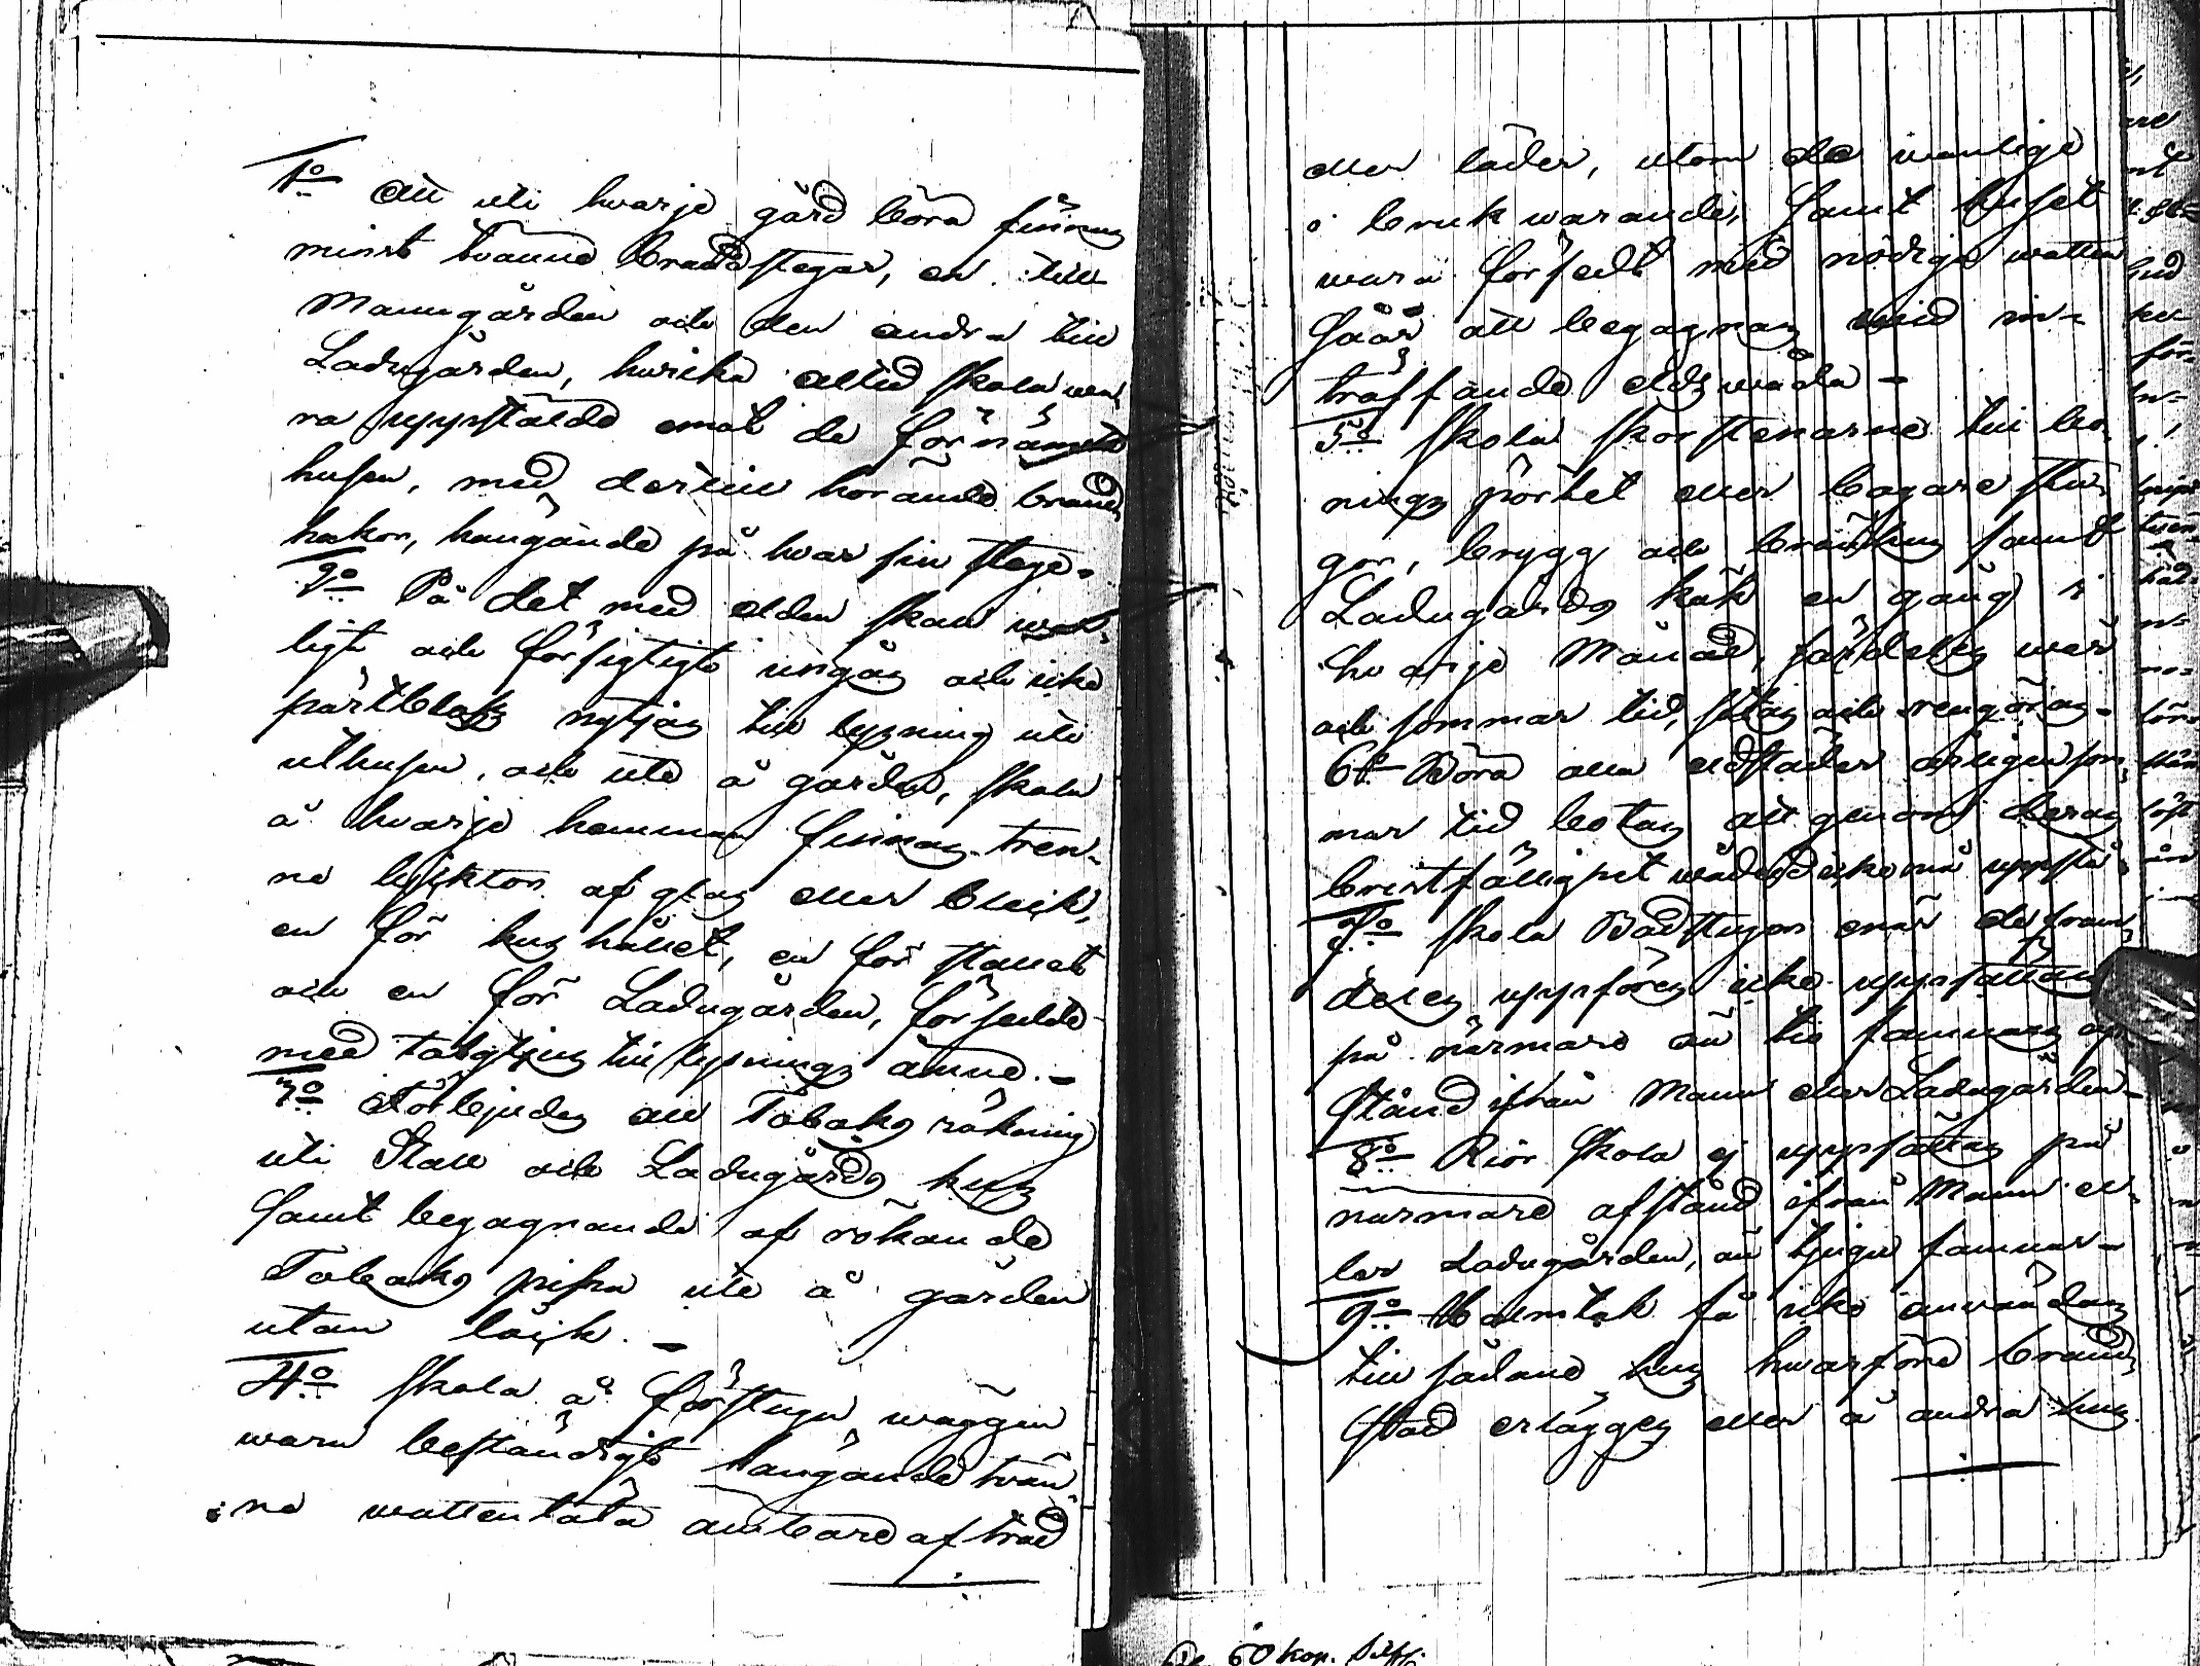 1o Att uti hvarje gård böra finnas
minst tvänne brandstegar, en till
Manngården och den andra till
Ladugården, hvilka alltid skola wa-
ra uppstälde emot de förnämsta
husen, med dertill hörande brand
hakar, hängande på hvar sin stege.
2o På det med elden skall war-
ligt och försigtigt umgås och icke
pärtbloss nytjas till lysning uti
uthusen, och ute å gården, skola
å hvarje hemman finnas tren-
ne lycktor af glas eller bleck,
en för hushållet, en för stallet
och en för Ladugården, försedde
med talgljus till lysnings ämne.
3o Förbjudes all Tobaks rökning
uti Stall och Ladugårds hus
samt begagnande af rökande
Tobaks pipa ute å gården
utan låck.
4o skola å förstugu wäggen
wara beständigt hängande twän-
ne wattentäta ämbare af träd
eller läder, utom de wanlige
i bruk warande, samt huset
wara försedt med nödige watten
såår att begagnas wid in-
träffande eldswåda
5o skola skorstenarne till bo-
nings pörtet eller bagare stu-
gor, brygg och brännhus samt
Ladugårds kök en gång i
hvarje Månad, särdeles wår
och sommar tid, sotas och rengöras.
6o Böra alla eldstäder årligen som-
mar tid botas att genom deras
bristfällighet wådeld icke må uppstå.
7o skola Badstugor enär de fram-
deles uppföres icke uppsättas
på närmare än tio famnars af-
stånd ifrån Mann eller Ladugården
8o Rior skola ej uppsättas på
närmare afstånd ifrån Mann el-
ler Ladugården, än tjugu famnar
9o Halmtak få icke användas
till sådane hus hwarföre brand-
stod erlägges eller å andra hus
60 kop. Silfr: